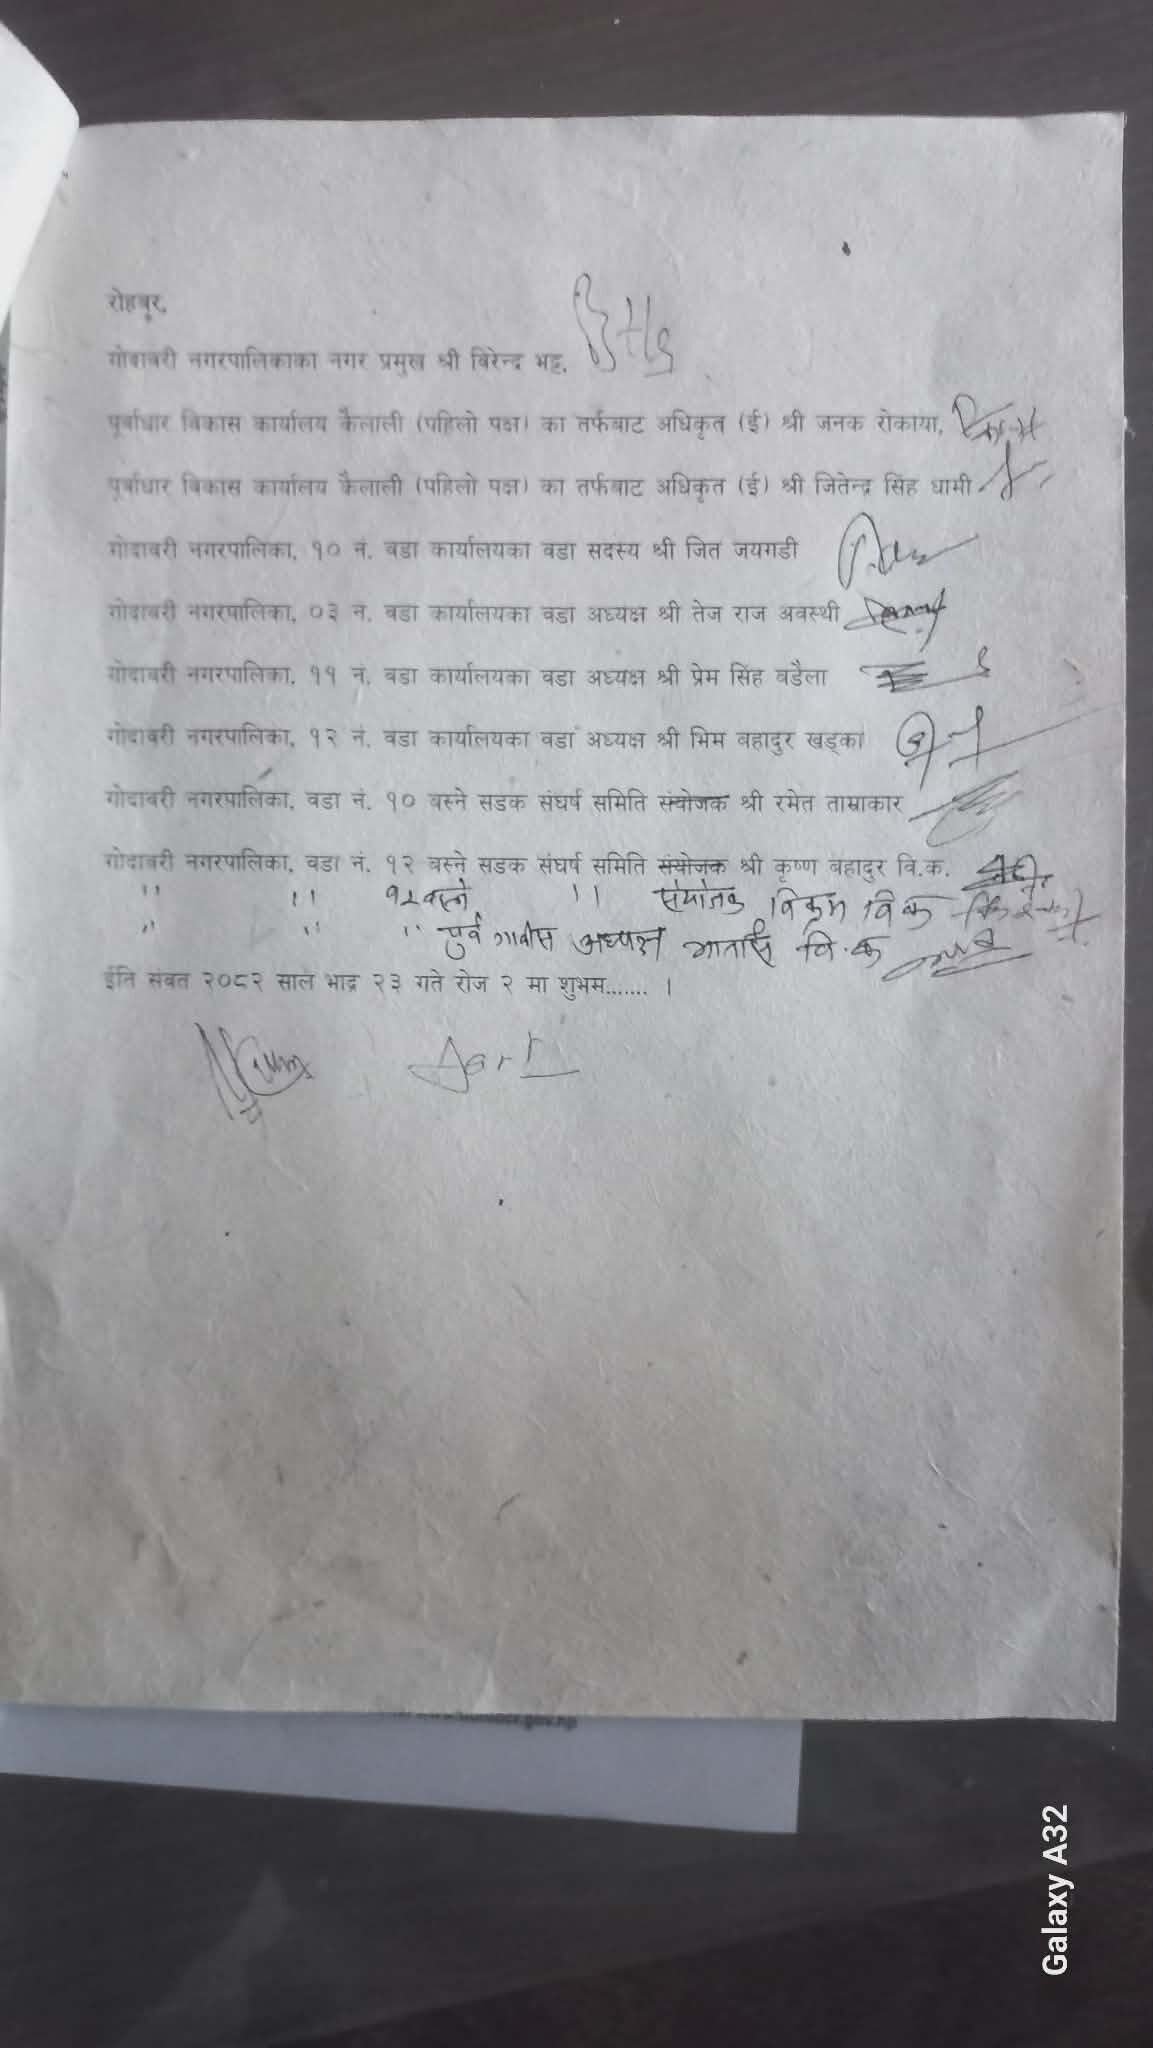 रोहवर,
गोदावरी नगरपालिकाका नगर प्रमुख श्री विरेन्द्र भट्ट,
पूर्वाधार विकास कार्यालय कैलाली (पहिलो पक्ष) का तर्फबाट अधिकृत (ई) श्री जनक रोकाया,
पूर्वाधार विकास कार्यालय कैलाली (पहिलो पक्ष) का तर्फबाट अधिकृत (ई) श्री जितेन्द्र सिंह धामी
गोदावरी नगरपालिका, १० नं. वडा कार्यालयका वडा सदस्य श्री जित जयगडी
गोदावरी नगरपालिका, ०३ नं. वडा कार्यालयका वडा अध्यक्ष श्री तेज राज अवस्थी
गोदावरी नगरपालिका, ११ नं. वडा कार्यालयका वडा अध्यक्ष श्री प्रेम सिंह वडैला
गोदावरी नगरपालिका, १२ नं. वडा कार्यालयका वडा अध्यक्ष श्री भिम बहादुर खड्का
गोदावरी नगरपालिका, वडा नं. १० बस्ने सडक संघर्ष समिति संयोजक श्री रमेत ताम्राकार
गोदावरी नगरपालिका, वडा नं. १२ बस्ने सडक संघर्ष समिति संयोजक श्री कृष्ण बहादुर वि.क.
" " १२ बस्ने " संयोजक विक्रम वि क
" " " पुर्व गाविस अध्यक्ष वि.क
ईति संवत २०८२ साल भाद्र २३ गते रोज २ मा शुभम....... ।